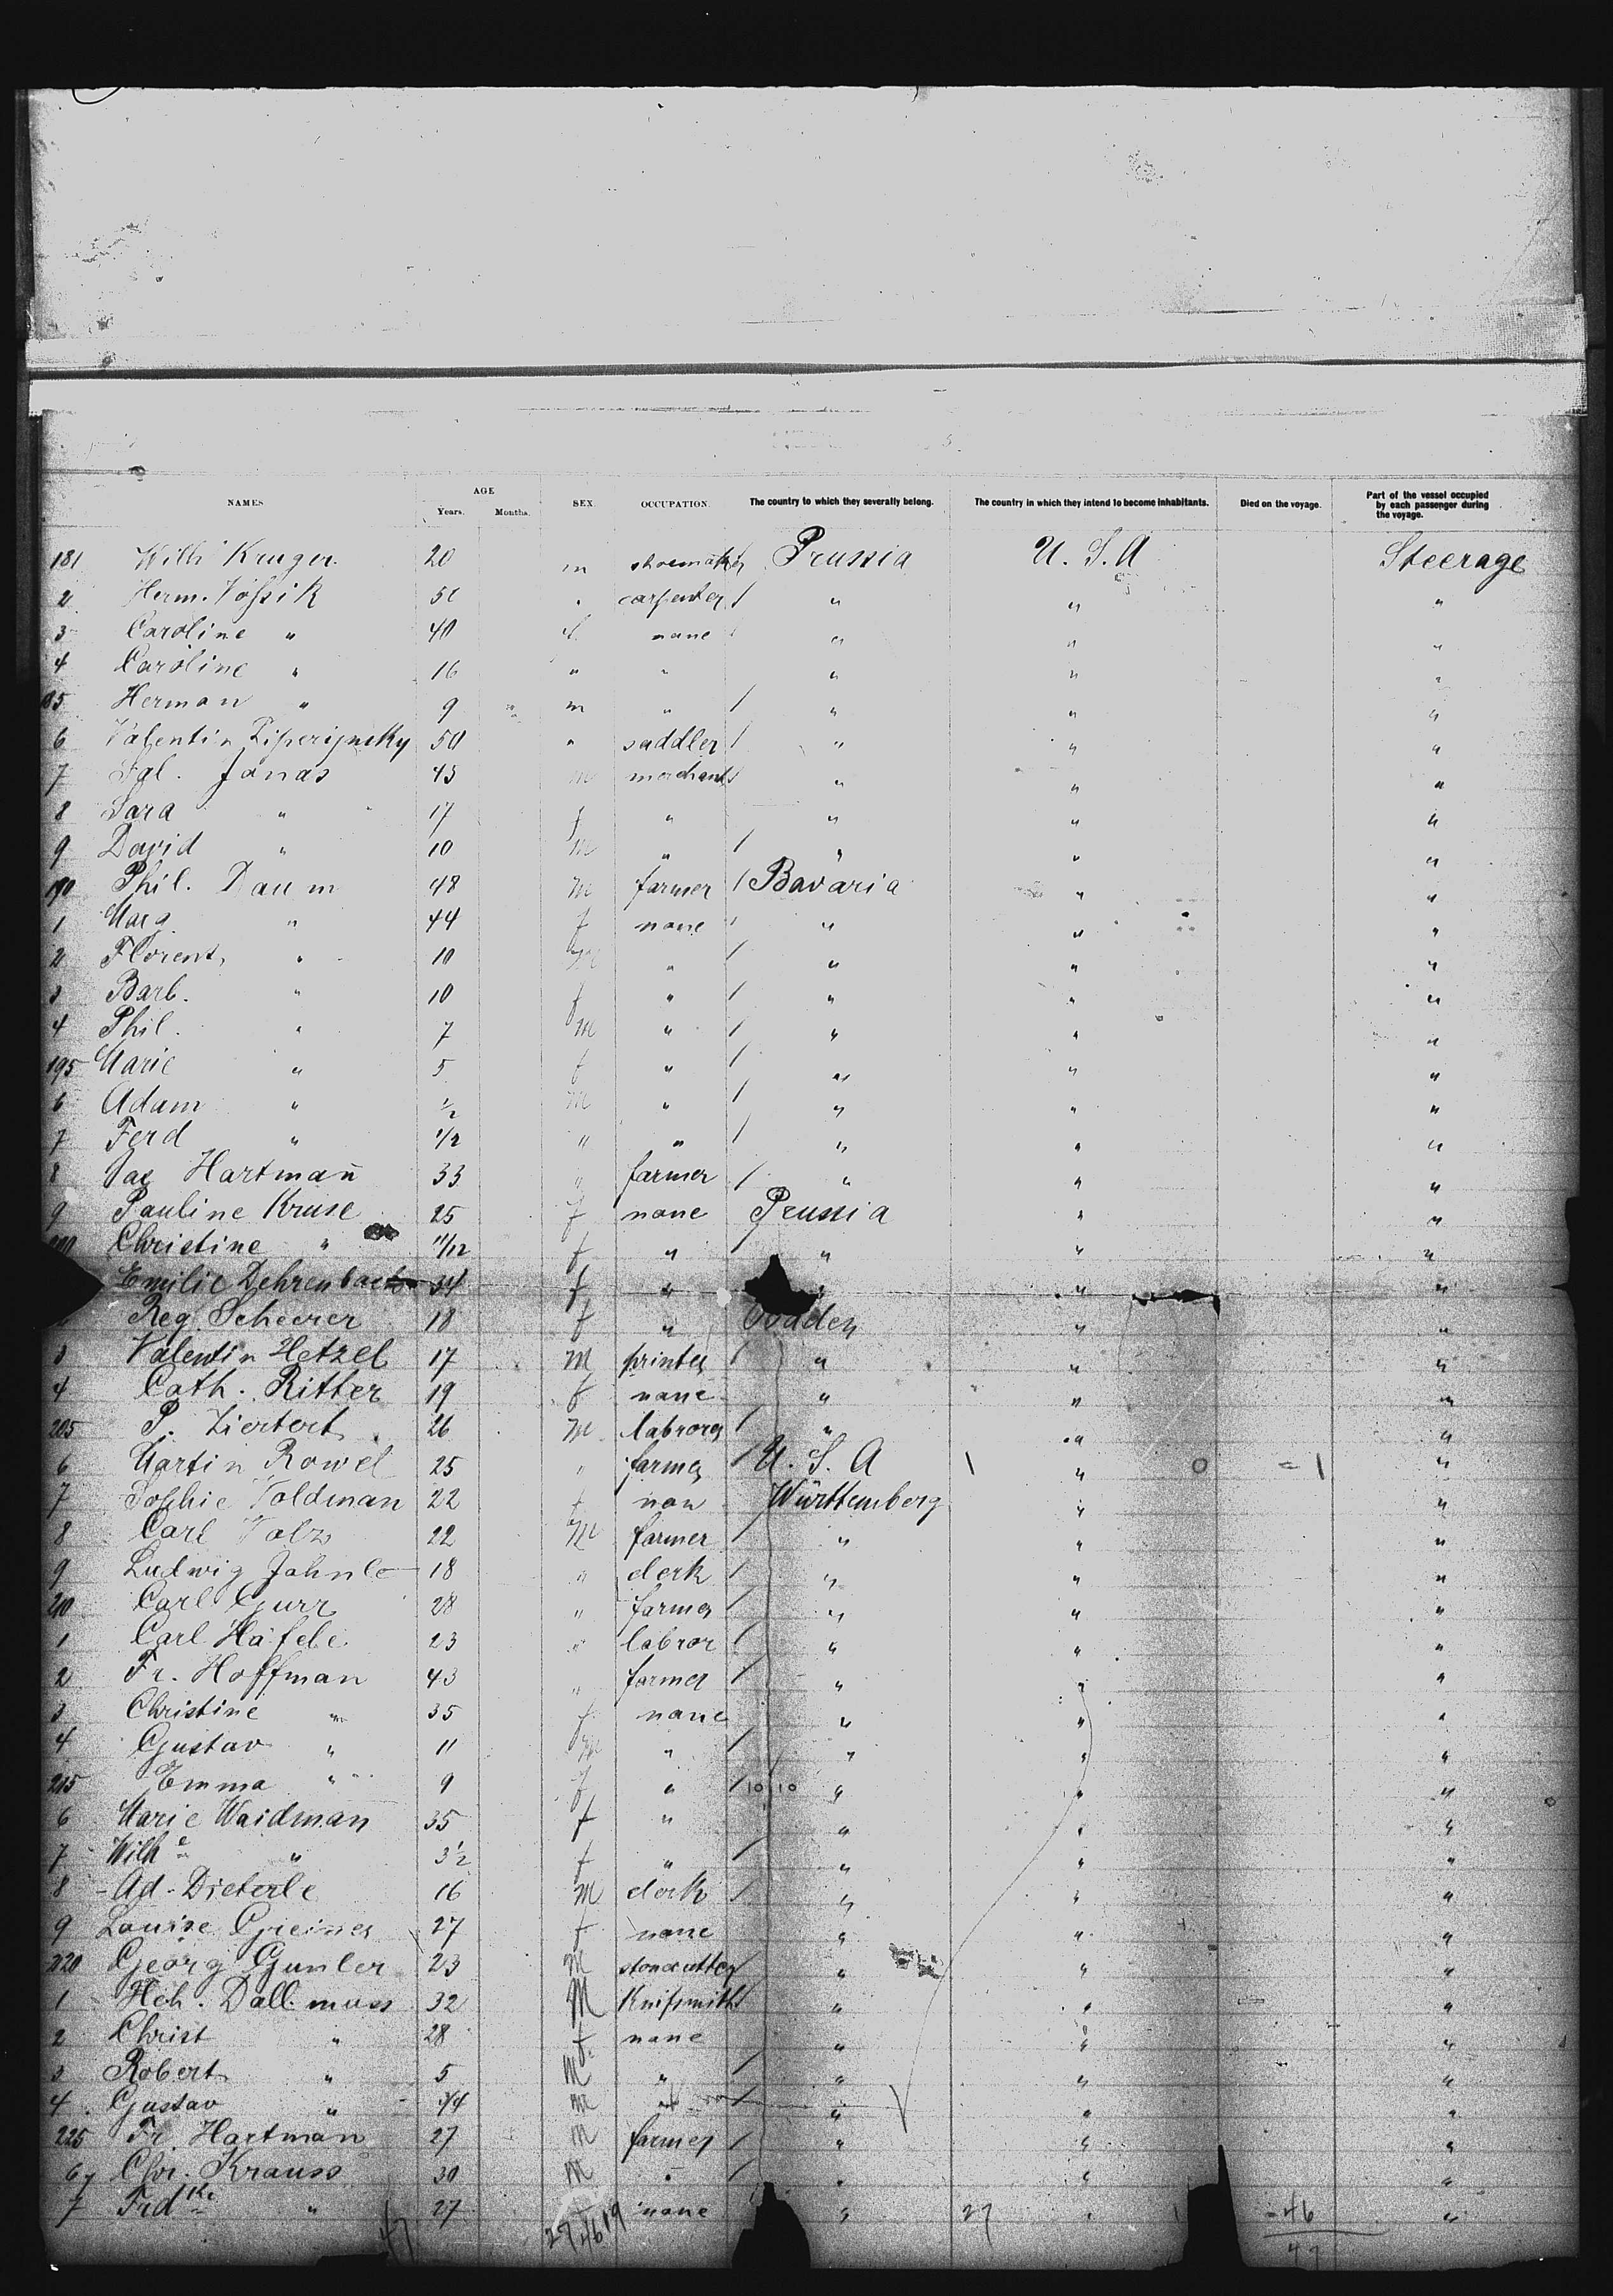 NAMES AGE Years. Months. SEX. OCCUPATION. The country to which they severally belong. The country in which they intend to become inhabitants. Died on the voyage. Part of the vessel occupied by each passenger during the voyage.
181 Wilh Kruger 20 m shoemaker Prussia U. S. A Steerage
2 Herm. 51 carpenter / " " "
3 Caroline " 40 f. none " " "
4 Caroline " 16 " " " " "
185 Herman " 9 m " / " " "
6 Valentin 50 " saddler / " " "
7 Jonas 45 m merchant / " " "
8 Sara " 17 f " " " "
9 David " 10 m " / " " "
190 Phil. Daum 48 m farmer / Bavaria " "
1 Marg " 44 f none " " "
2 Florent " 10 m " / " " "
3 Barb. " 10 f " / " " "
4 Phil. " 7 m " / " " "
195 Marie " 5 f " / " " "
6 Adam " 1/2 m " / " " "
7 Ferd " 1/2 " " / " " "
8 Jac Hartman̄ 33 " farmer / " " "
9 Pauline Kruse 25 f none Prussia " "
Christine " 11/12 f " " " "
Emilie Dehrenbach 34 f " " "
Reg. Scheerer 18 f " Baden " "
3 Valentin Hetzel 17 M printer / " " "
4 Cath. Ritter 19 f none " " "
205 P. 26 M labrorer / " " "
6 Martin Rowel 25 " farmer / U. S. A \ " 0 = 1 "
7 Sophie Voldman 22 f non Württemberg " "
8 Carl Volz 22 M farmer / " " "
9 Ludwig Jahnle 18 " clerk / " " "
210 Carl Gurr 28 " farmer / " " "
1 Carl Häfele 23 " labror / " " "
2 Fr. Hoffman 43 " farmer / " " "
3 Christine " 35 f none " " "
4 Gustav " 11 m " / " " "
215 Emma " 9 f " / 10 10 " " "
6 Marie Waidman 35 f " " " "
7 Wilh e " 3 1/2 f " / " " "
8 - Ad. Dieterle 16 M clerk / " " "
9 Louise Greiner 27 f none " " "
220 Georg Gunler 23 M stonecutter / " " "
1 Hch. Dallmuss 32 M Knifsmith / " " "
2 Christ " 28 f. none " " "
3 Robert " 5 M " / " " "
4 Gustav " 3/4 m " " " "
225 Fr Hartman 27 m farmer / " " "
6 Chr. Krauss 30 M " / " " "
7 Frd ke " 27 none " 27 " - 46 "
47 27 46 19 47